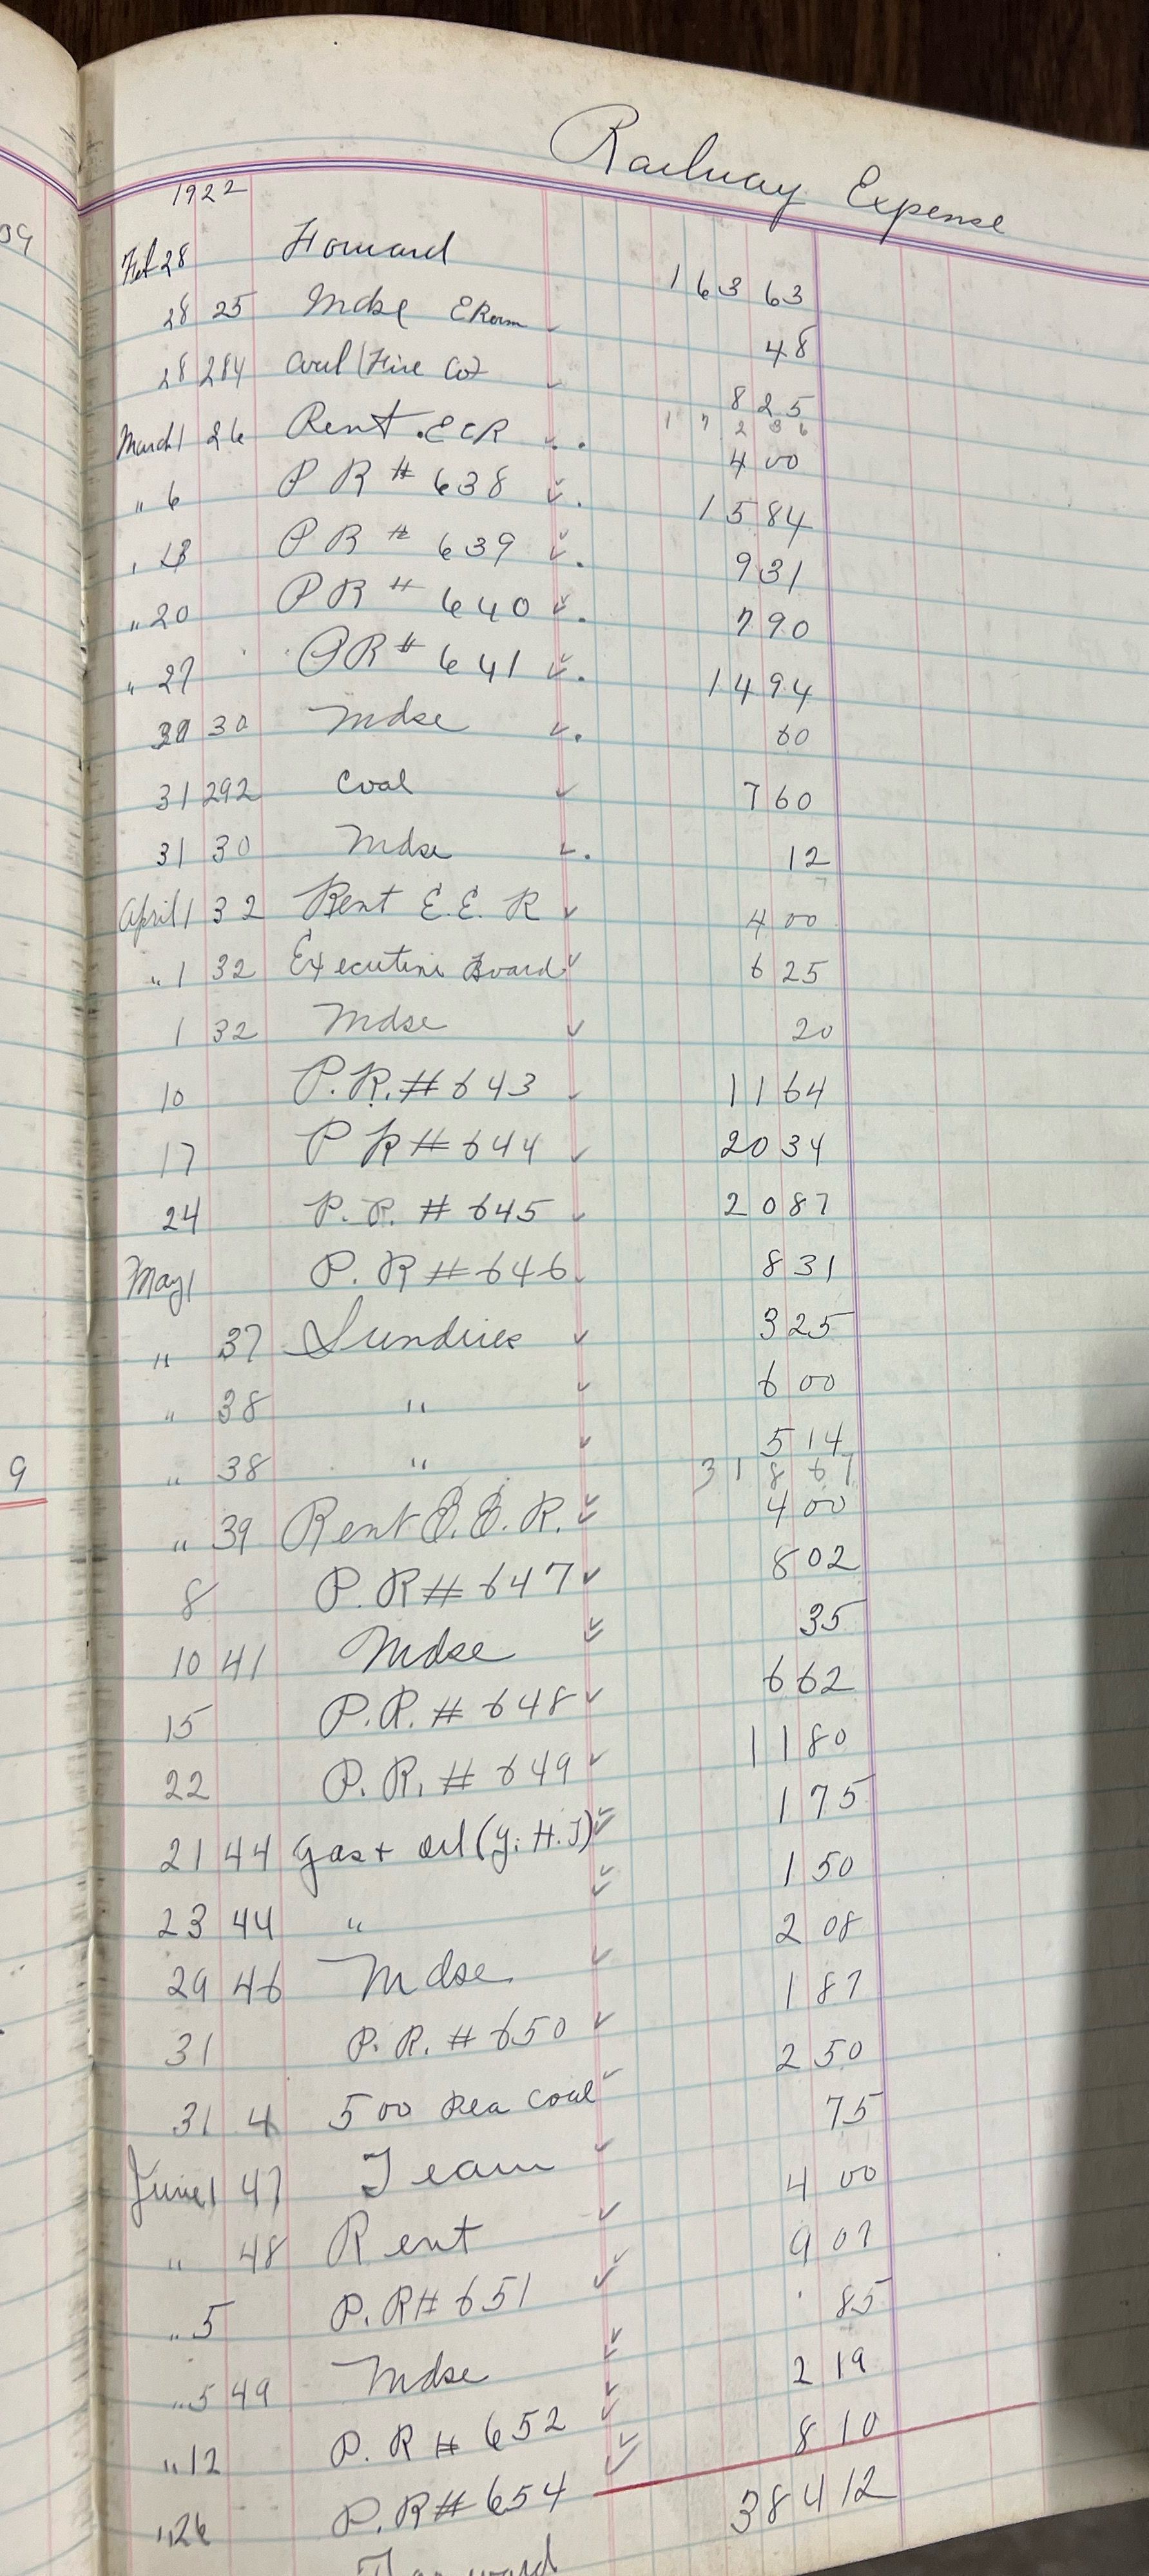 39
9
Railway Expense
1922
Feb 28 Forward 163 63
28 25 Mdse E Room 48
28 284 Coal (Fire Co) 8 25
172 36
March 1 26 Rent . E E R 4 00
" 6 P R # 638 15 84
" 13 P R # 639 9 31
" 20 P R # 640 7 90
" 27 P R # 641 14 94
30 30 Mdse 60
31 292 Coal 7 60
31 30 Mdse 12
April 1 32 Rent E. E. R 4 00
" 1 32 Executive Board 6 25
1 32 Mdse 20
10 P. R. # 643 11 64
17 P R # 644 20 34
24 P. R. # 645 20 87
May 1 P. R # 646 8 31
" 37 Sundries 3 25
" 38 " 6 00
" 38 " 5 14
318 67
" 39 Rent E. E. R. 4 00
8 P. R # 647 8 02
10 41 Mdse 35
15 P. R. # 648 6 62
22 P. R. # 649 11 80
21 44 Gas + Oil (G. H. J) 1 75
23 44 " 1 50
29 46 Mdse 2 08
31 P. R. # 650 1 87
31 4 500 Pea Coal 2 50
June 1 47 Team 75
" 48 Rent 4 00
" 5 P. R # 651 9 07
" 5 49 Mdse 85
" 12 P. R # 652 2 19
" 26 P. R # 654 8 10
Forward 384 12